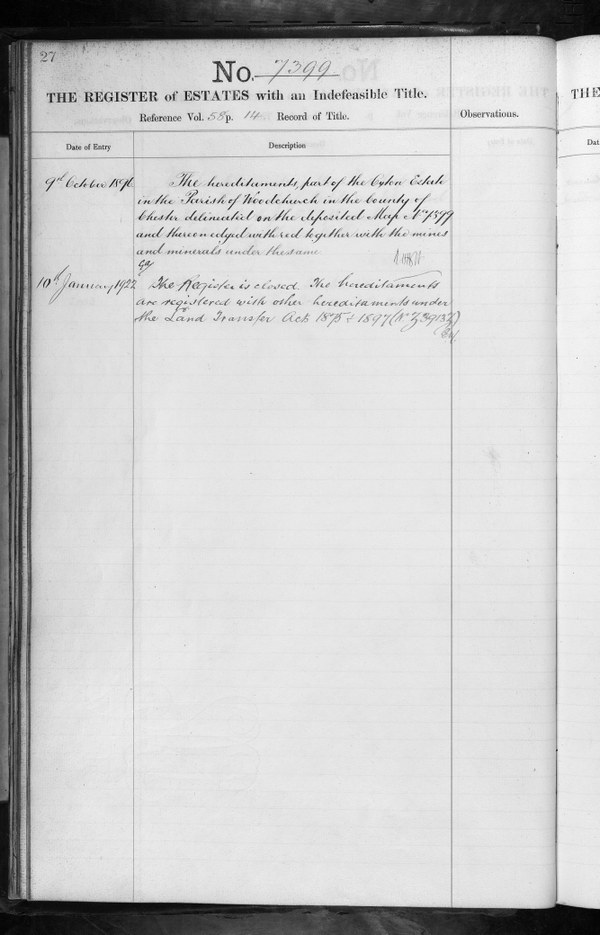 27
No. 7399
THE REGISTER of ESTATES with an Indefeasible Title.
Reference Vol. 58 p. 14 Record of Title.
Observations.
Date of Entry
Description
9th October 1896
The hereditaments, part of the Oxton Estate
in the Parish of Woodchurch in the County of
Chester delineated on the deposited Map No 7399
and thereon edged with red together with the mines
and minerals under the same
10th January 1922
The Register is closed. The hereditaments
are registered with other hereditaments under
the Land Transfer Acts 1875 & 1897 (No Z 39137)
THE
Dat